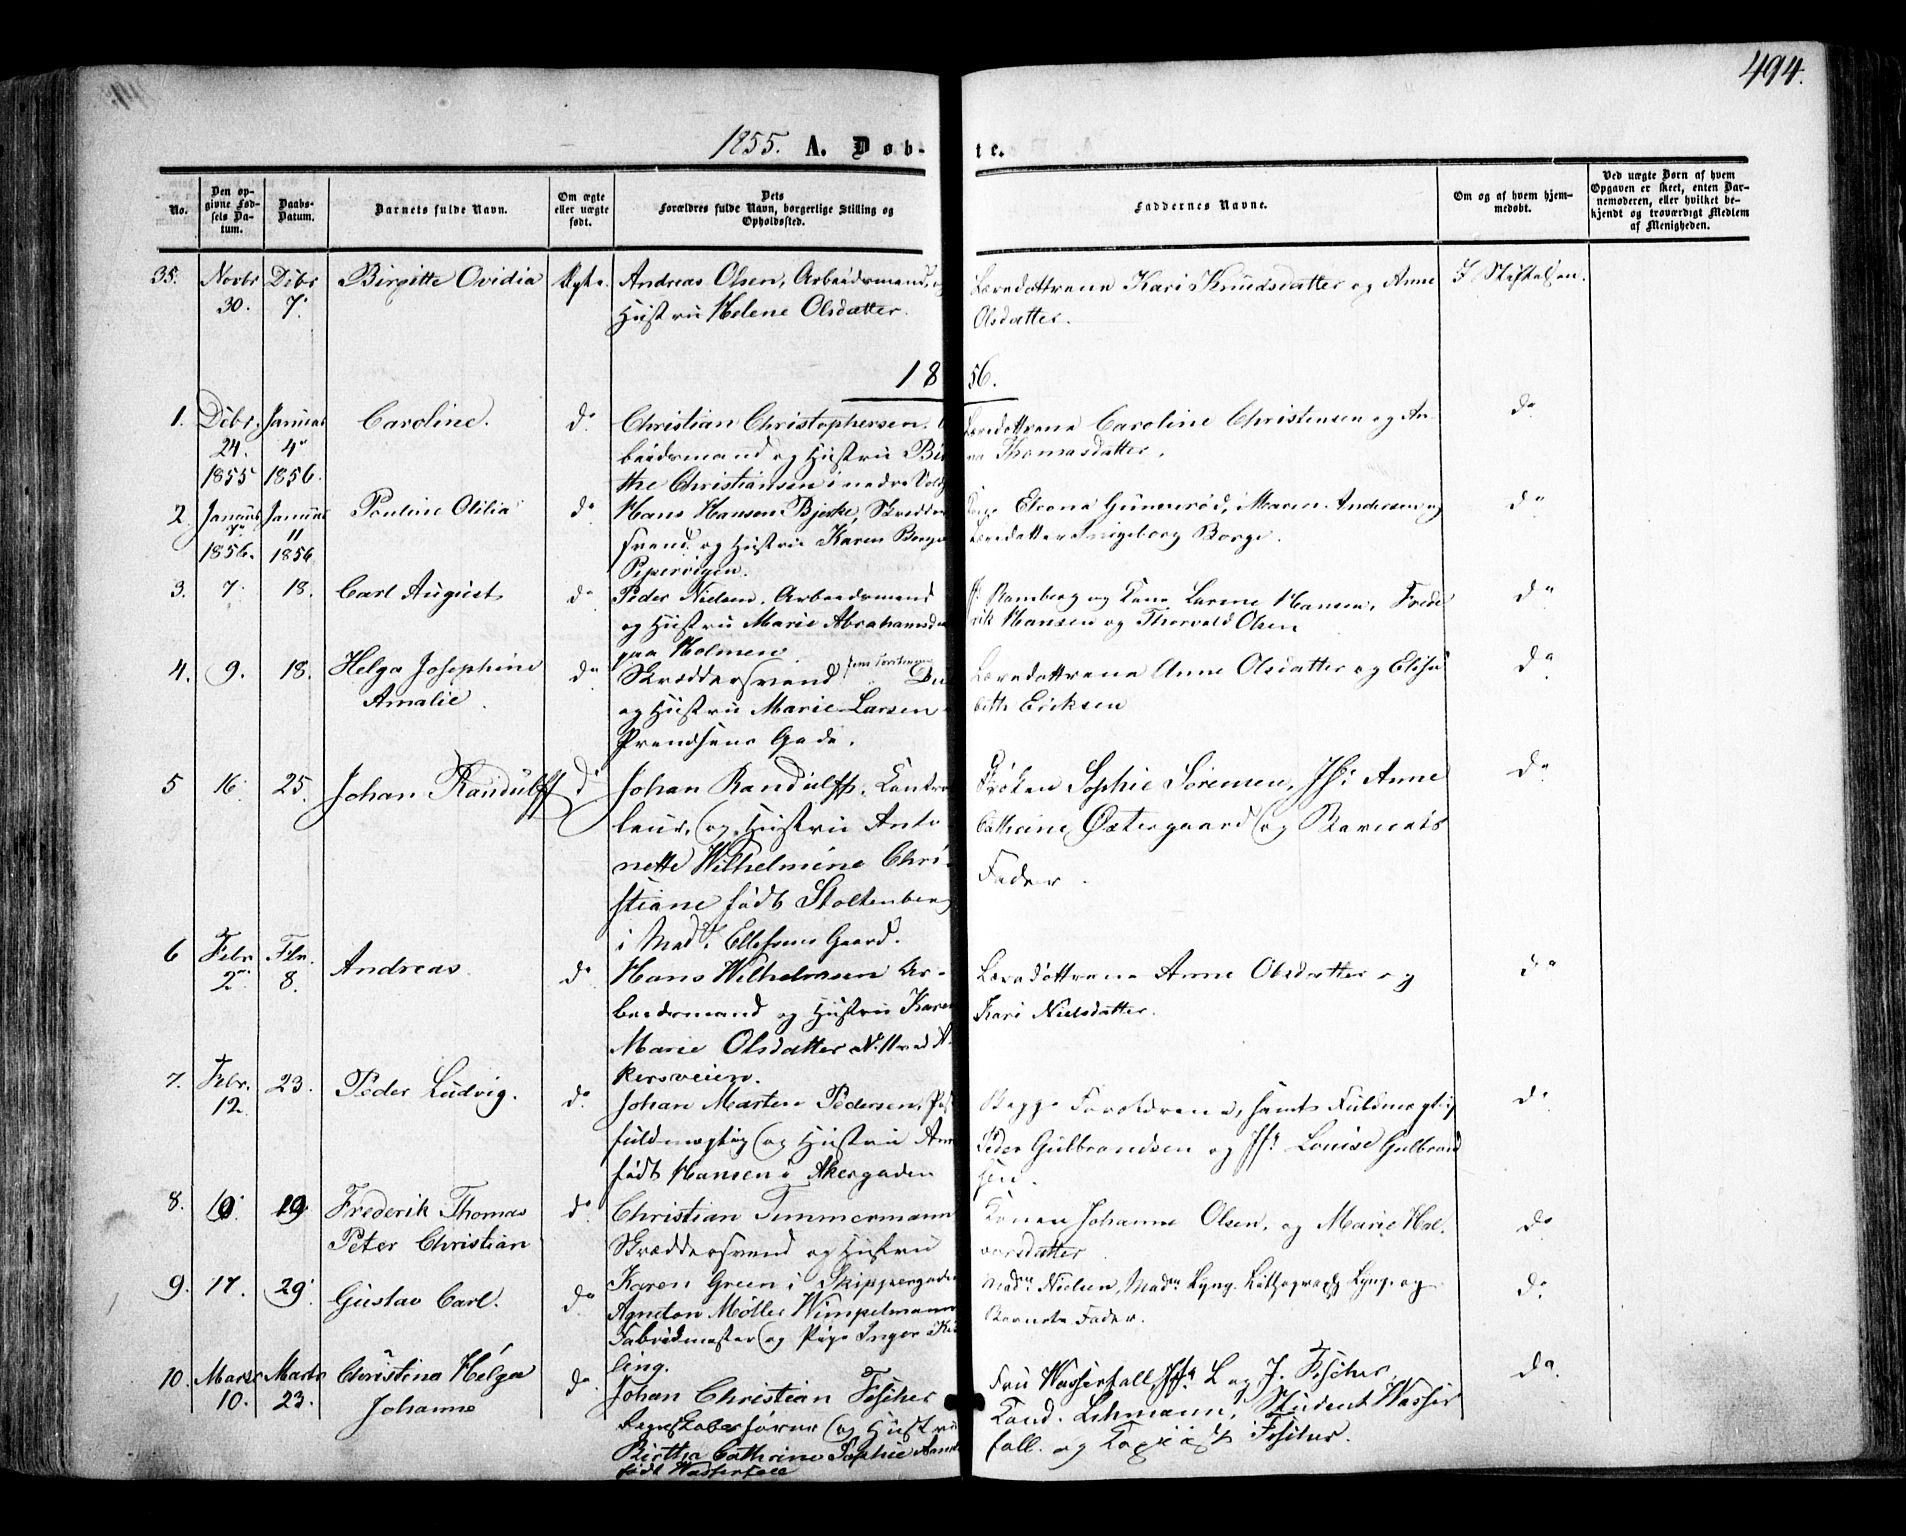 494.
1855. A. Døb-te.
No.
Den opgivne Fødsels Datum.
Daabs-Datum.
Barnets fulde Navn.
Om ægte eller uægte født.
Dets Forældres fulde Navn, borgerlige Stilling og Opholdssted.
Faddernes Navne.
Om og af hvem hjemmedøbt.
Ved uægte Børn af hvem Opgaven er skeet, enten Barnemoderen, eller hvilket bekjendt og troværdigt Medlem af Menigheden.
35. Novbr 30. Debr 7. Birgitte Ovidia Ægte. Andreas Olsen, Arbeidsmand, og
Hustru Helene Olsdatter.
Kari Knudsdatter og Anne
Olsdatter.
I Stiftelsen.
1856.
1. Debr. 24. 1855 Januar 4 1856. Caroline. do
Christian Christophersen.
beidsmand og Hustru
the Christiansen i nedre
Caroline Christensen og An-
na Thomasdatter.
do
2. Januar 7 1856. Januar 11 1856 Pauline Otilia do
Hans Hansen Bjerke, Skrædder
svend og Hustru Karen
Pipervigen.
Gunnerød, Maren Andersen og
Ingeborg Borge.
do
3. 7. 18. Carl August do
Peder Nielsen. Arbeidsmand
og Hustru Marie Abrahamsda
paa Holmen
Ramberg og Kone Larine Hansen, Frede
rik Hansen og Thorvald Olsen
do
4. 9. 18. Helga Josephine
Amalie. do
Skræddersvend
og Hustru Marie Larsen
Prindsens Gade.
Anne Olsdatter og Elisa
beth Ericksen
do
5 16. 25. Johan Randulff do
Johan Randulff, Contro
leur, og Hustru Anto
nette Wilhelmine Chri-
stiane født Stoltenberg
i Mad. Ellefsens Gaard.
Frøken Sophie Sørensen, Jfr Anne
Cathrine Østergaard og Barnets
Fader.
do
6 Febr 2. Febr. 8. Andreas do
Hans Wilhelmsen Ar-
beidsmand og Hustru Karen
Marie Olsdatter No 11 ved A-
kersveien.
Anne Olsdatter og
Kari Nielsdatter.
do
7. Febr. 12. 23. Peder Ludvig. do
Johan Marten Pedersen,
fuldmægtig og Hustru
født Hansen i Akersgaden
Begge Forældrene, samt Fuldmægtig
Peder Gulbrandsen og Jfr Louise Gulbrand
sen.
do
8. 19 Frederik Thomas
Peter Christian do
Christian Timmermann
Skræddersvend og Hustru
Karen Green i Skippergaden
Konen Johanne Olsen, og Marie Hal-
vorsdatter
do
9. 17. 29. Gustav Carl. do
Møller Wimpelmann
Fabrikmester og Pige Inger
ling.
Madm Nielsen, Madm Lyng. Lithograph Lynge og
Barnets Fader.
do
10. Marts 10. Marts 23. Christina Helga
Johanne do
Johan Christian Fischer
Regnskabsfører og Hustru
Birthe Cathrine Sophie
født Wasserfall
Fru Wasserfall, Jfr L og J. Fischer,
Cand. Lehmann, Student Wasser
fall. og Copist Fischer.
do